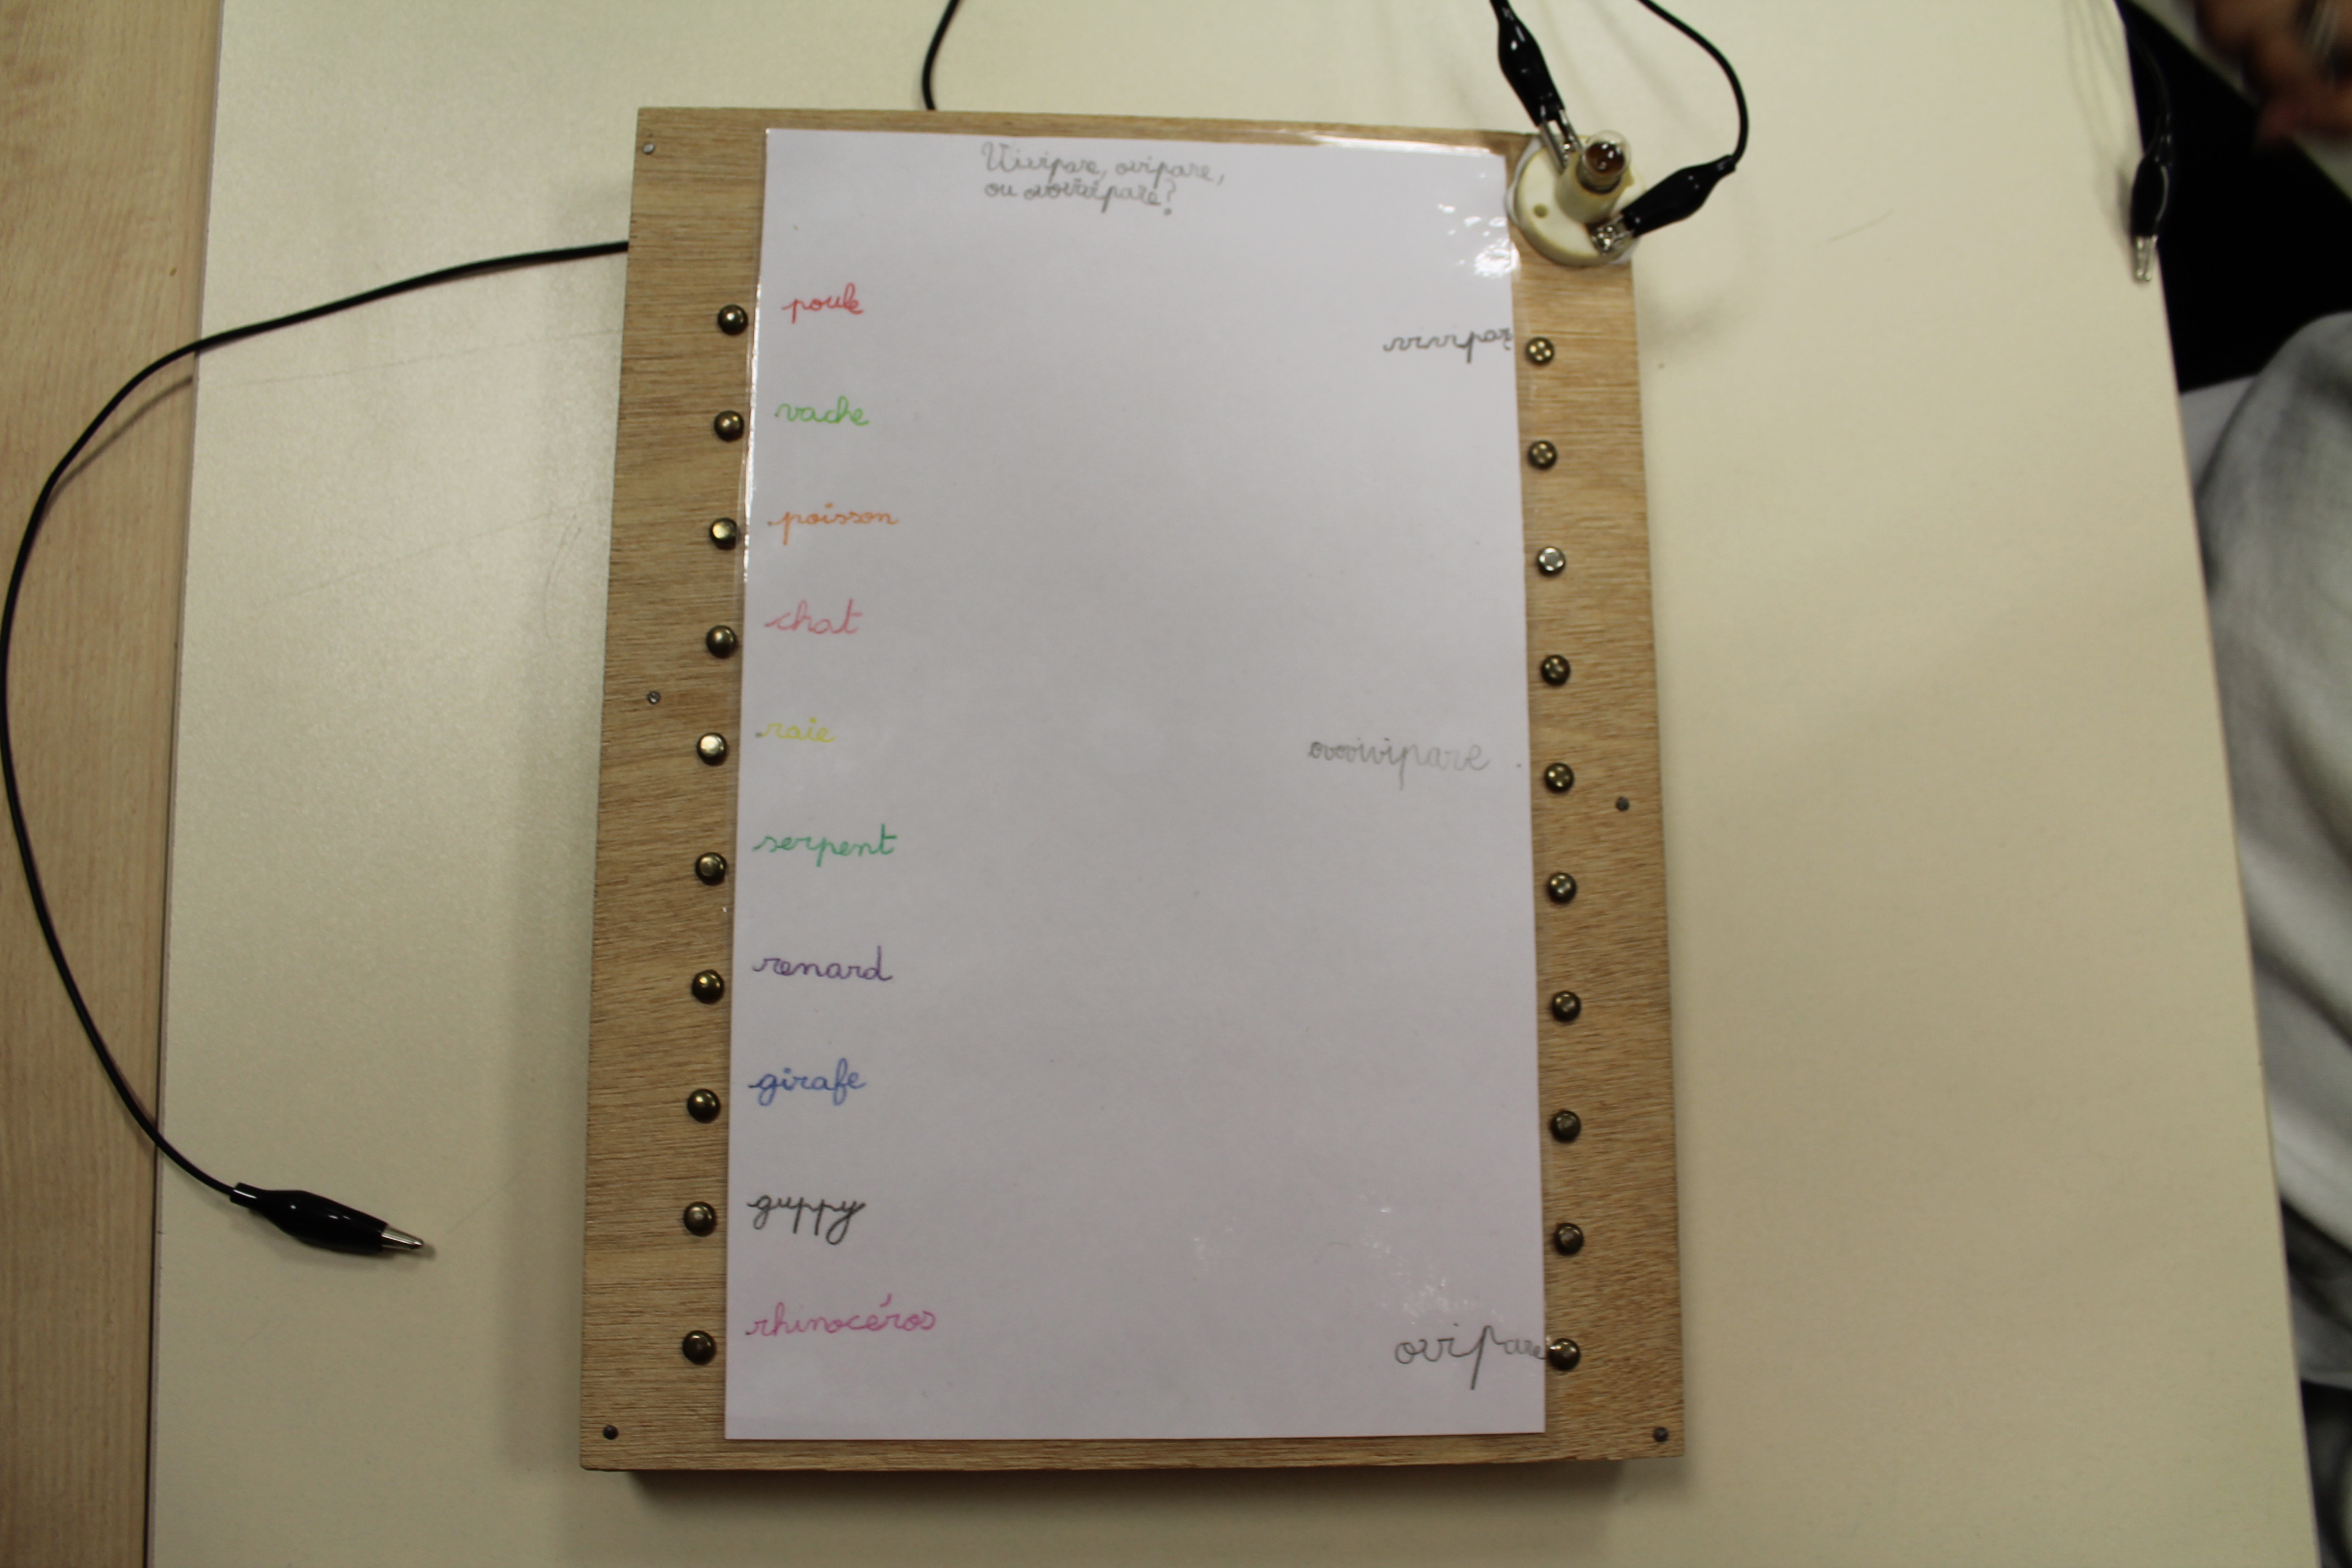 Vivipare, ovipare,
ou ovovivipare?
poule
vivipar
vache
poisson
chat
raie
ovovivipare
serpent
renard
girafe
guppy
rhinocéros
ovipare